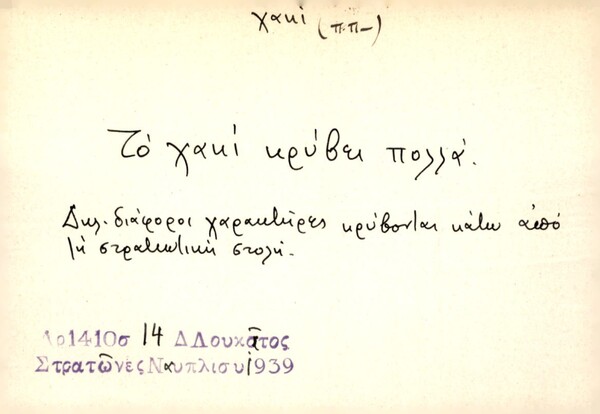 χακί (π.π-)
Τό χακί κρύβει πολλά.
Δηλ. διάφοροι χαρακτήρες κρύβονται κάτω από
τή στρατιωτική στολή.
Αρ1410σ 14 Δ Λουκᾶτος
Στρατῶνες Ναυπλίου 1939